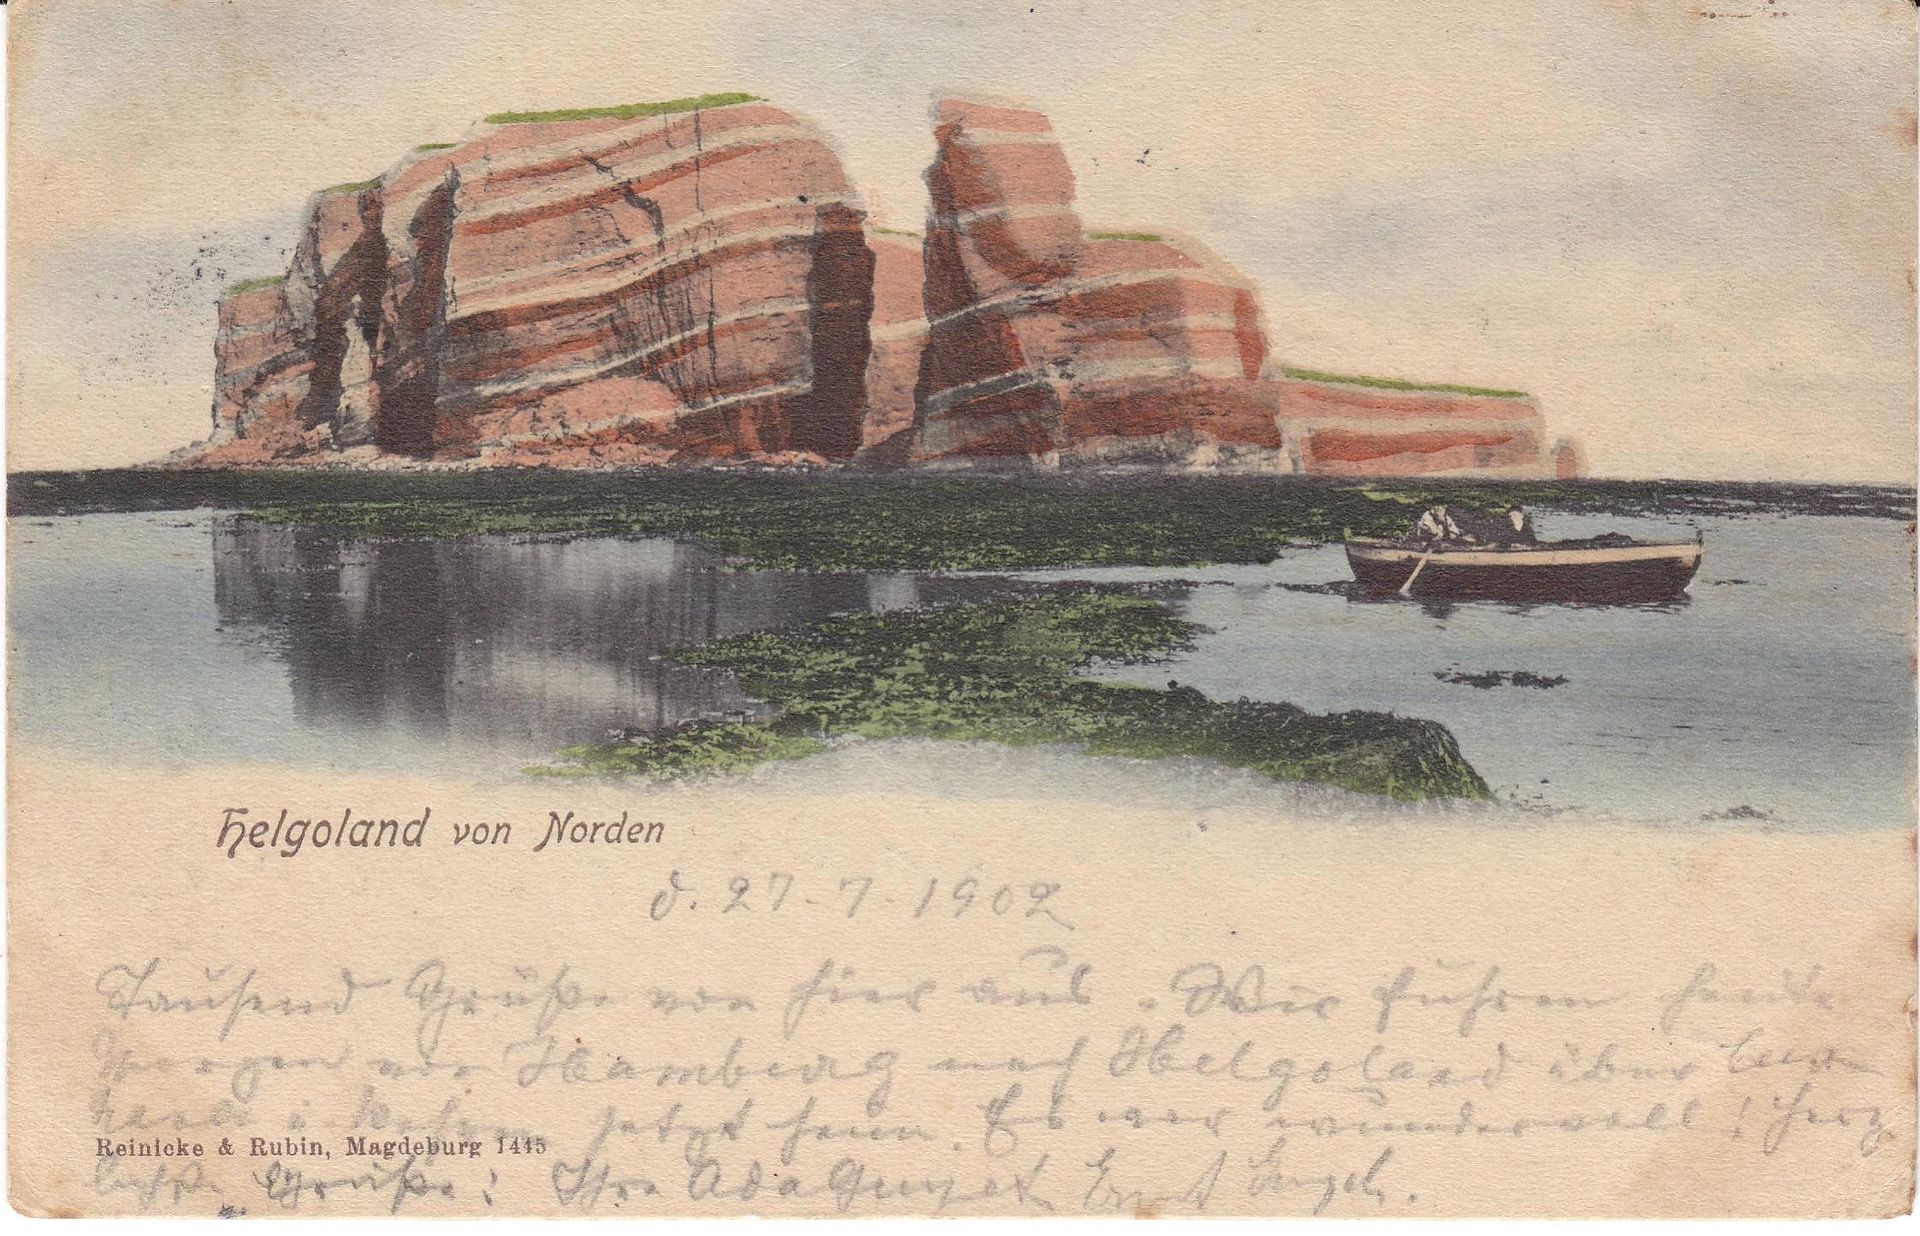 Helgoland von Norden
d. 27.7.1902
Tausend Grüße von hier aus. Wir fuhren heute
Morgen von Hamburg nach Helgoland über
jetzt heim. Es war wundervoll! Herz
liche Grüße! Ihre Ada
Reinicke & Rubin, Magdeburg 1445